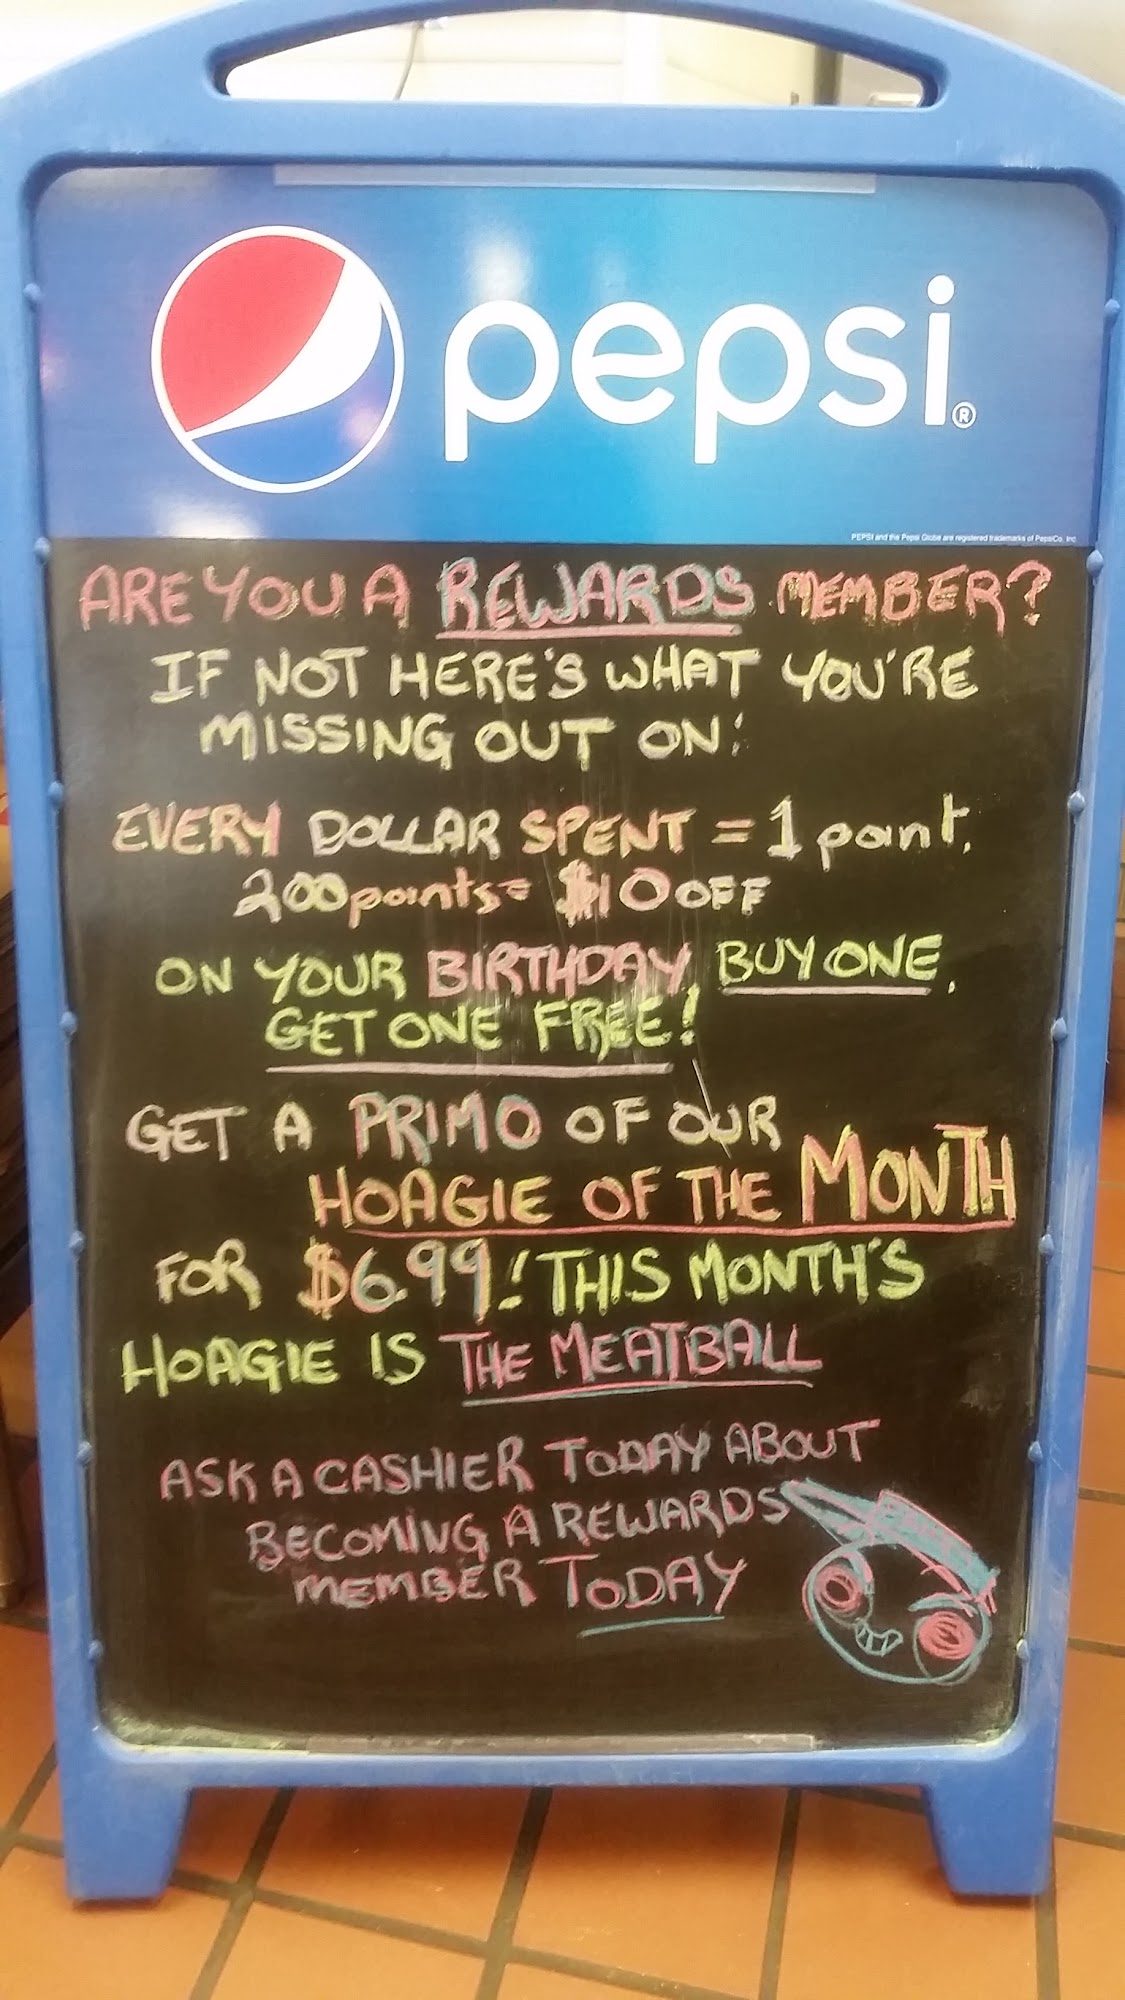 pepsi®
PEPSI and the Pepsi Globe are registered trademarks of PepsiCo, Inc.
ARE YOU A REWARDS MEMBER?
IF NOT HERE'S WHAT YOU'RE
MISSING OUT ON:
EVERY DOLLAR SPENT = 1 point.
200 points = $10 OFF
ON YOUR BIRTHDAY BUY ONE,
GET ONE FREE!
GET A PRIMO OF OUR
HOAGIE OF THE MONTH
FOR $6.99! THIS MONTH'S
HOAGIE IS THE MEATBALL
ASK A CASHIER TODAY ABOUT
BECOMING A REWARDS
MEMBER TODAY